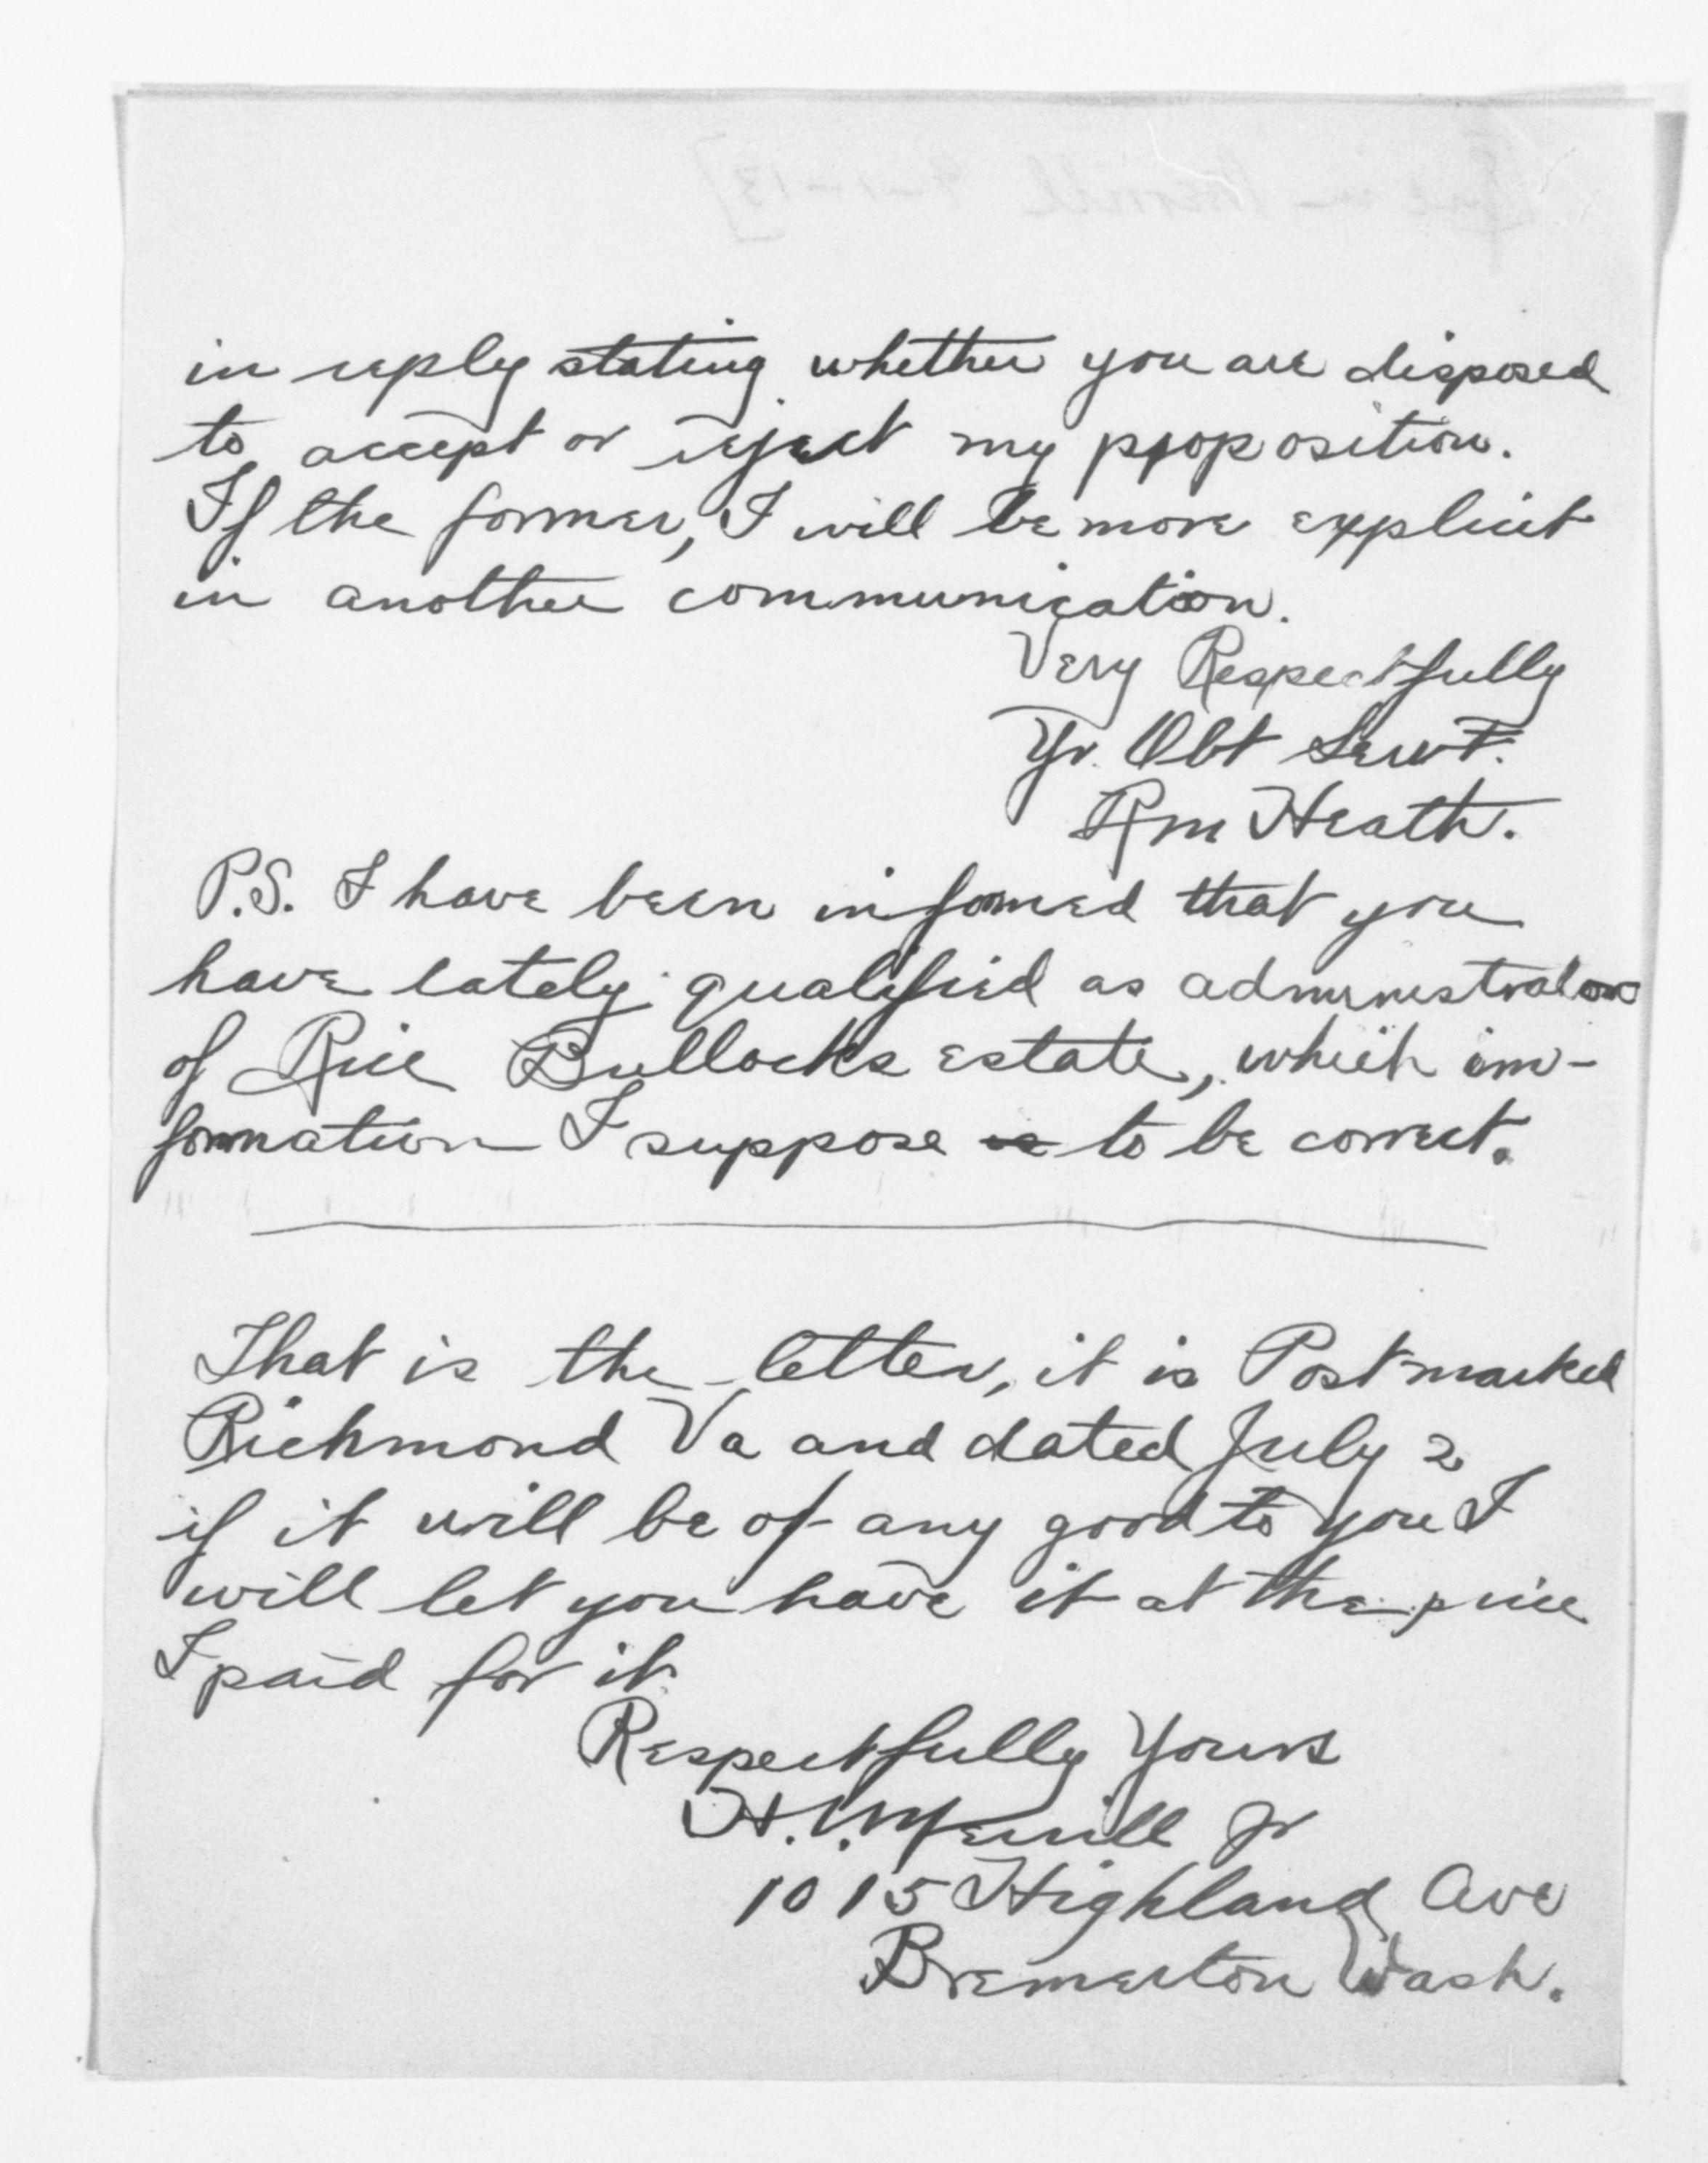 in reply stating whether you are disposed
to accept or reject my proposition.
If the former, I will be more explicit
in another communication.
Very Respectfully
Yr. Obt Servt.
Rm Heath.
P.S. I have been informed that you
have lately qualified as administrator
of Rice Bullocks estate, which in-
formation I suppose is to be correct.
That is the letter, it is Postmarked
Richmond Va and dated July 2
if it will be of any good to you I
will let you have it at the price
I paid for it
Respectfully Yours
H. V. Merrill Jr
1015 Highland Ave
Bremerton Wash.